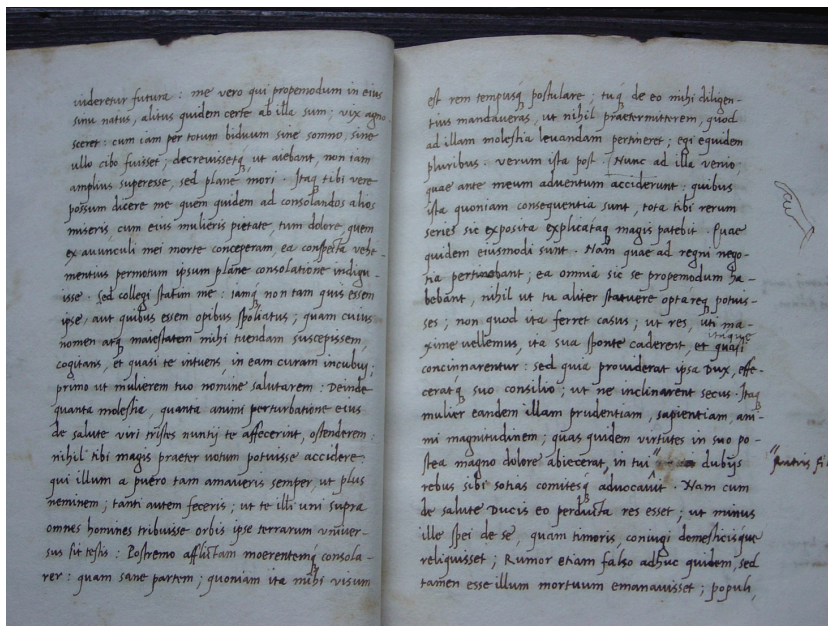 videretur futura : me vero qui propemodum in eius
sinu natus, alitus quidem certe ab illa sum ; vix agno
sceret : cum iam per totum biduum sine somno, sine
ullo cibo fuisset ; decrevissetq́, ut aiebant, non iam
amplius superesse, sed plane mori . Itaq́ tibi vere
possum dicere me quem quidem ad consolandos alios
miseris, cum eius mulieris pietate, tum dolore, quem
ex avunculi mei morte conceperam, ea conspecta vehe-
mentius permotum ipsum plane consolatione indigu-
isse . Sed collegi statim me : iamq́ non tam quis essem
ipse, aut quibus essem opibus spoliatus ; quam cuius
nomen atq́ maiestatem mihi tuendam suscepissem,
cogitans, et quasi te intuens, in eam curam incubui ;
primo ut mulierem tuo nomine salutarem : Deinde
quanta molestia, quanta animi perturbatione eius
de salute viri tristes nuntij te affecerint, ostenderem :
nihil tibi magis praeter votum potuisse accidere :
qui illum a puero tam amaveris semper, ut plus
neminem ; tanti autem feceris ; ut te illi uni supra
omnes homines tribuisse orbis ipse terrarum univer-
sus sit testis : Postremo afflictam moerentemq́ consola-
rer : quam sane partem ; quoniam ita mihi visum
est rem tempusq́ postulare ; tuq́ de eo mihi diligen-
tius mandaveras, ut nihil praetermitterem, quod
ad illam molestia levandam pertineret ; egi equidem
pluribus . verum ista post . Nunc ad illa venio,
quae ante meum adventum acciderunt : quibus
ista quoniam consequentia sunt, tota tibi rerum
series sic exposita explicataq́ magis patebit . Quae
quidem eiusmodi sunt . Nam quae ad regni nego-
tia pertinebant ; ea omnia sic se propemodum ha-
bebant, nihil ut tu aliter statuere optareq́ potuis-
ses ; non quod ita ferret casus ; ut res, uti ma-
xime vellemus, ita sua sponte caderent, et quasi
itaque
concinnarentur : sed quia providerat ipsa Dux, effe-
ceratq́ suo consilio ; ut ne inclinarent secus . Itaq́
mulier eandem illam prudentiam, sapientiam, ani-
mi magnitudinem ; quas quidem virtutes in suo po-
stea magno dolore abiecerat, in tui dubijs
fratris fi
rebus sibi sotias comitesq́ advocavit . Nam cum
de salute Ducis eo perducta res esset ; ut minus
ille spei de se, quam timoris, coniugi domesticisque
reliquisset ; Rumor etiam falso adhuc quidem, sed
tamen esse illum mortuum emanavisset ; populi,